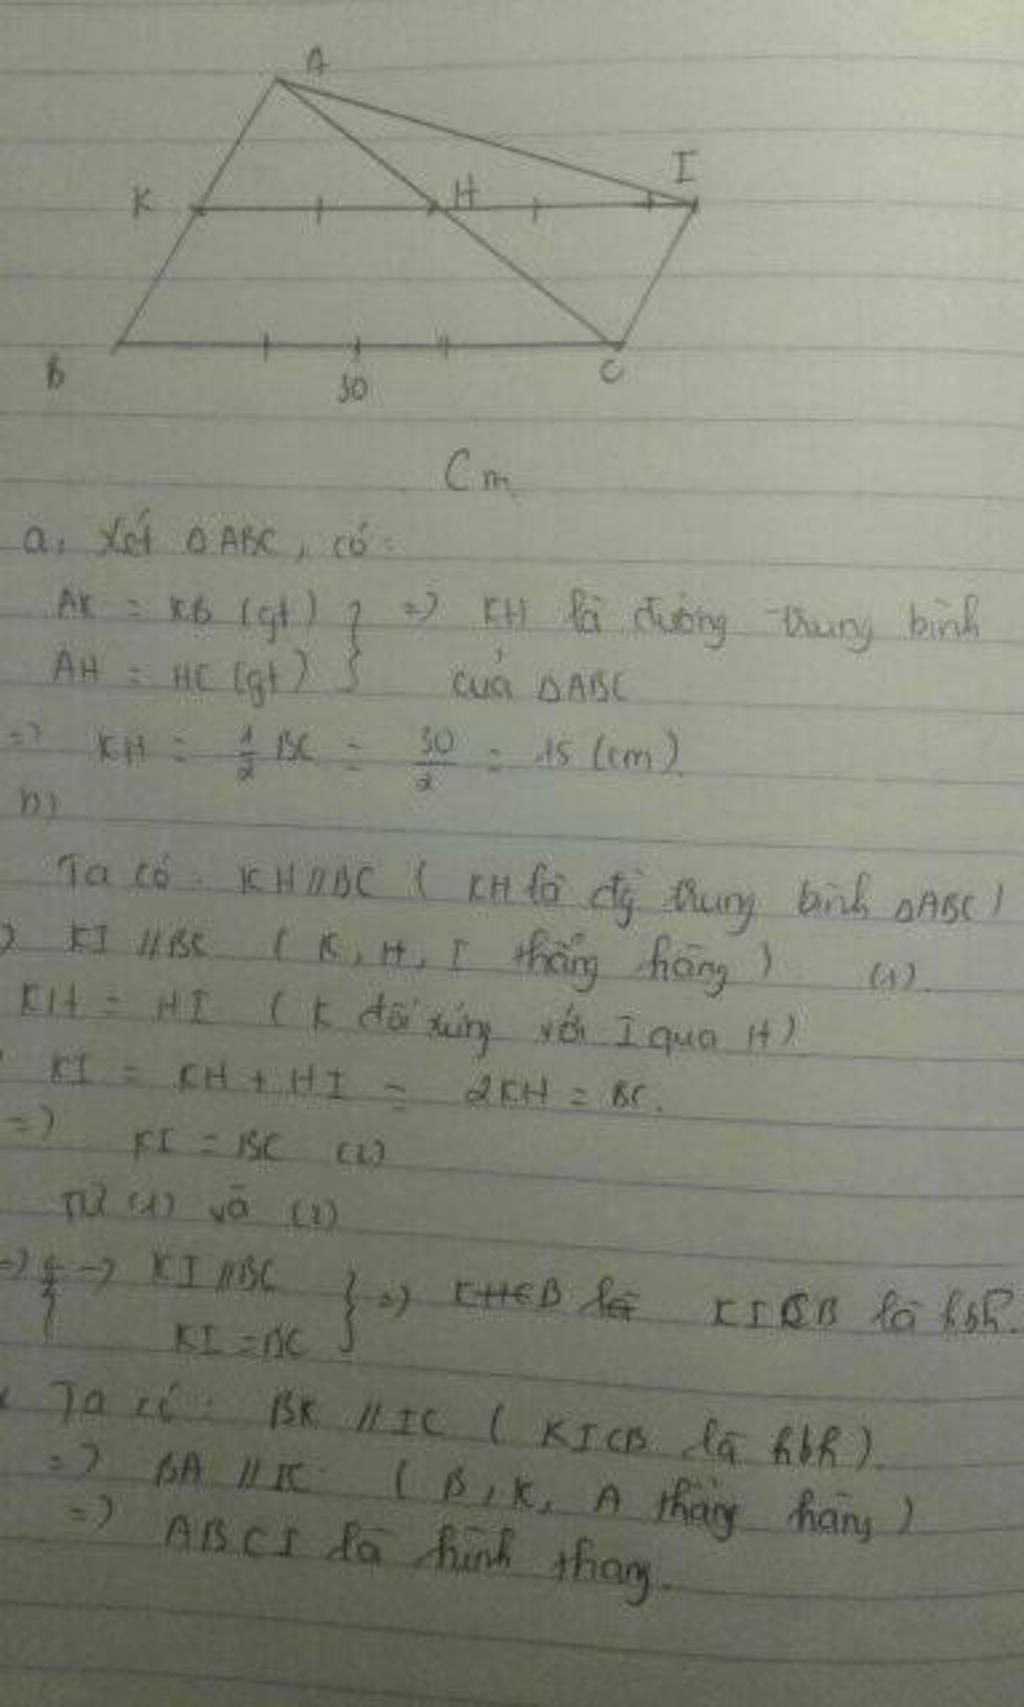 A
I
K
H
B
30
C
Cm
a, Xét △ABC, có:
AK = KB (gt) } => KH là đường trung bình
AH = HC (gt) của △ABC
=> KH = 1/2 BC = 30/2 = 15 (cm)
b)
Ta có: KH // BC ( KH là đg trung bình △ABC )
KI // BC ( K, H, I thẳng hàng ) (1).
KH = HI ( K đối xứng với I qua H )
KI = KH + HI = 2KH = BC.
=> KI = BC (2)
Từ (1) và (2)
=> KI // BC } => KHCB là KICB là hbh.
KI = BC
Ta có: BK // IC ( KICB là hbh ).
=> BA // IC ( B, K, A thẳng hàng )
=> ABCI là hình thang.